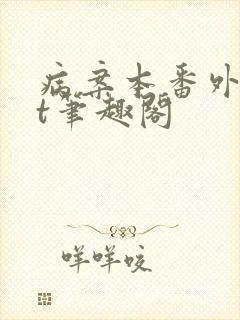 病案本番外
t笔趣阁
咩咩咬